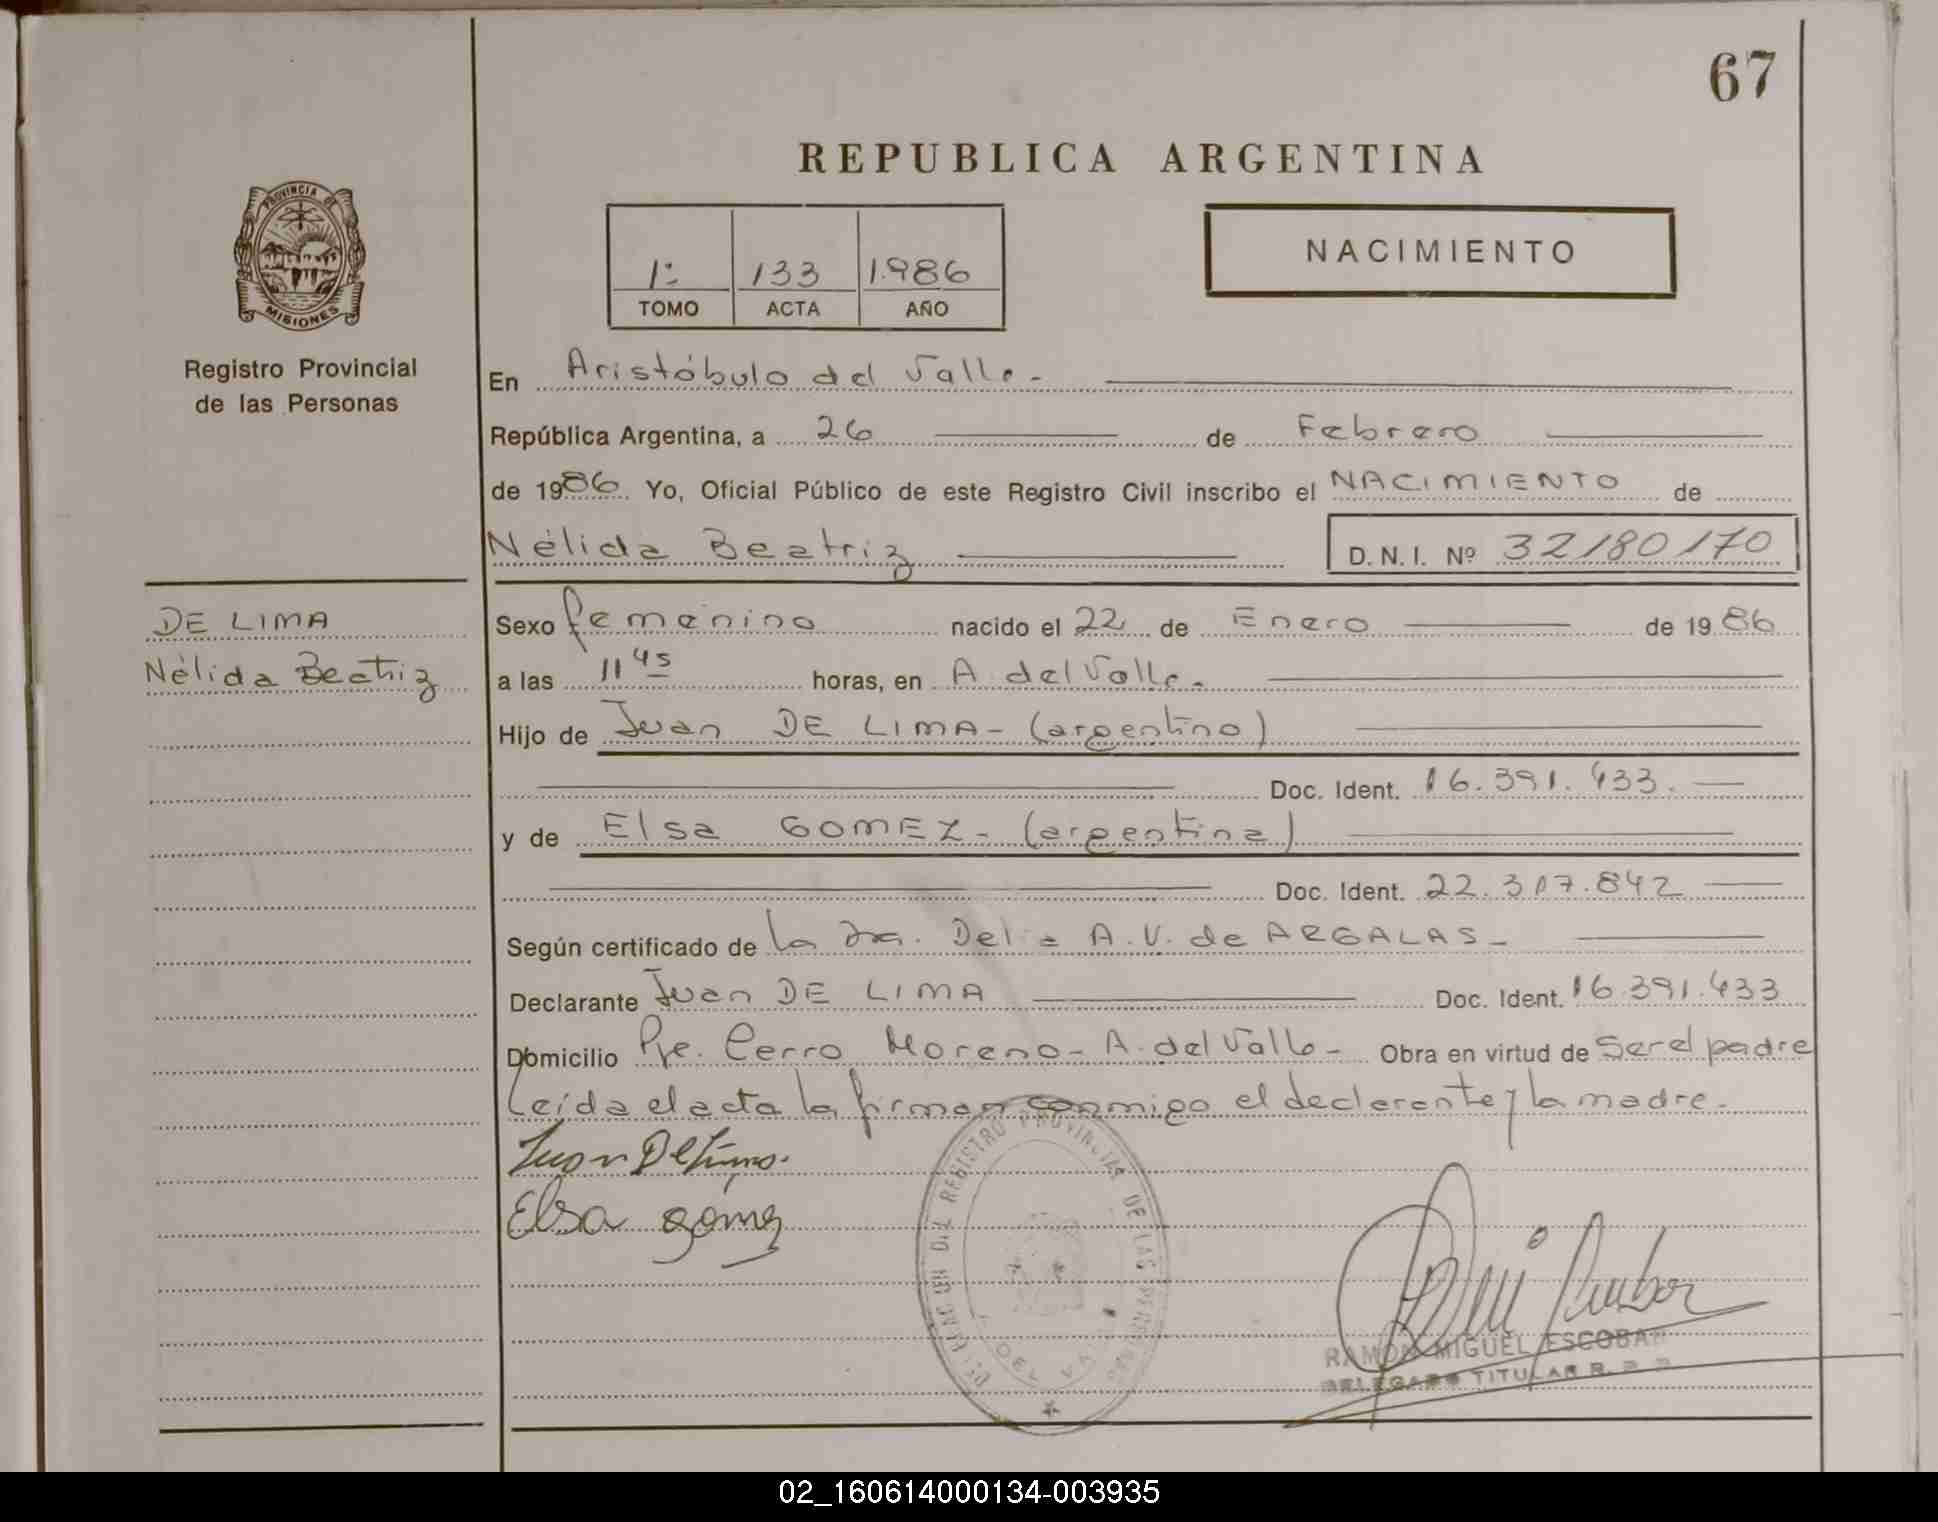 67
REPUBLICA ARGENTINA
PROVINCIA DE
MISIONES
Registro Provincial
de las Personas
1º 133 1.986
TOMO ACTA AÑO
NACIMIENTO
En Aristóbulo del Valle.-
República Argentina, a 26 de Febrero
de 1986. Yo, Oficial Público de este Registro Civil inscribo el NACIMIENTO de
Nélida Beatriz D.N.I. Nº 32180170
DE LIMA
Nélida Beatriz
Sexo femenino nacido el 22 de Enero de 1986
a las 11 45 horas, en A. del Valle.-
Hijo de Juan DE LIMA- (argentino)
Doc. Ident. 16.391.433.
y de Elsa GOMEZ- (argentina)
Doc. Ident. 22.317.842
Según certificado de la Dra. Delia A.V. de ARGALAS-
Declarante Juan DE LIMA Doc. Ident. 16.391.433
Domicilio Pje. Cerro Moreno- A. del Valle- Obra en virtud de Ser el padre
Leída el acta la firman conmigo el declarante y la madre.-
Juan De Lima.
Elsa Gómez
REGISTRO PROVINCIAL DE LAS PERSONAS
RAMON MIGUEL ESCOBAR
DELEGADO TITULAR R. P. P.
02_160614000134-003935